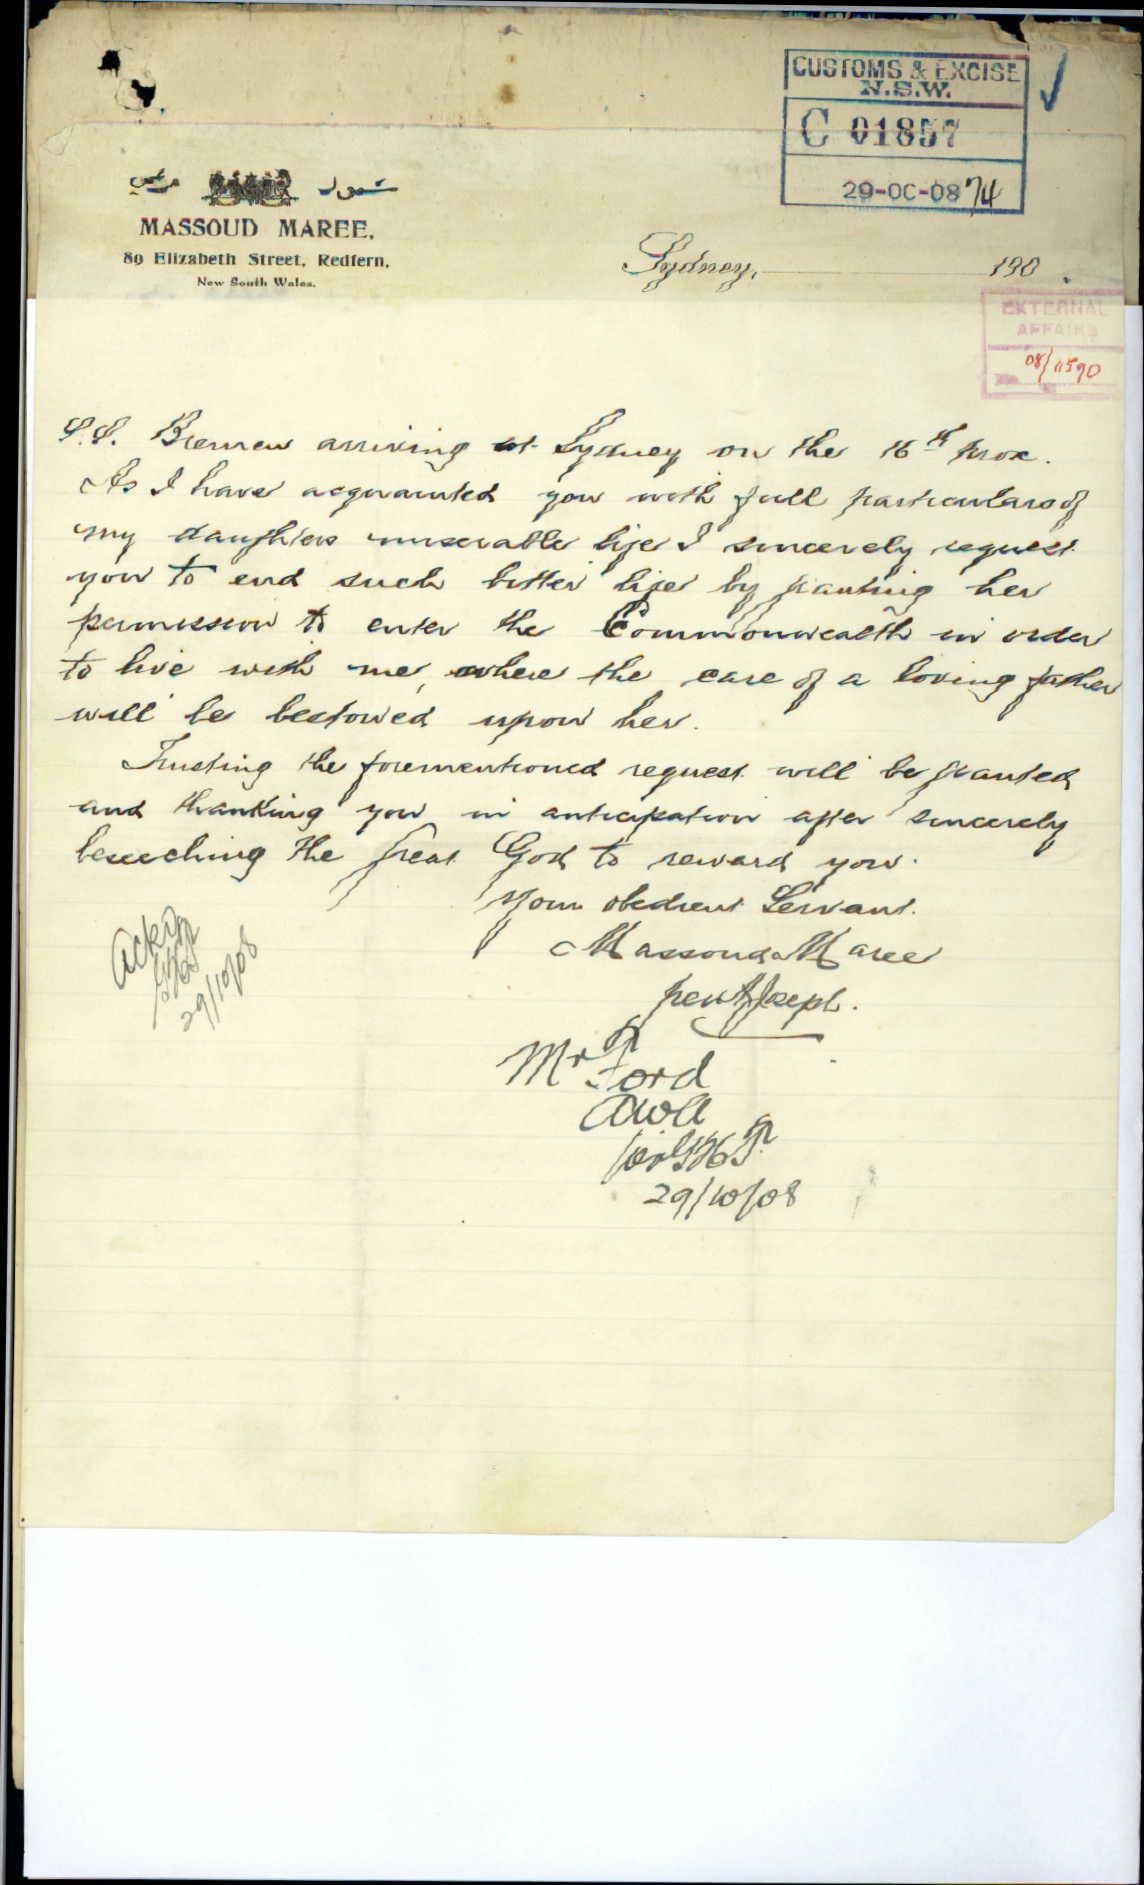 CUSTOMS & EXCISE
N.S.W.
C 01857
29-OC-08 74
مرعي مسعود
MASSOUD MAREE,
80 Elizabeth Street, Redfern,
New South Wales.
Sydney, 190
EXTERNAL
AFFAIRS
08/11590
S.S. Bremen arriving at Sydney on the 16th prox.
As I have acquainted you with full particulars of
my daughters miserable life I sincerely request
you to end such bitter life by granting her
permission to enter the Commonwealth in order
to live with me, where the care of a loving father
will be bestowed upon her.
Trusting the forementioned request will be granted
and thanking you in anticipation after sincerely
beseeching the great God to reward you.
Your obedient Servant.
Massoud Maree
per A Joseph.
Ackn
29/10/08
Mr Ford
29/10/08